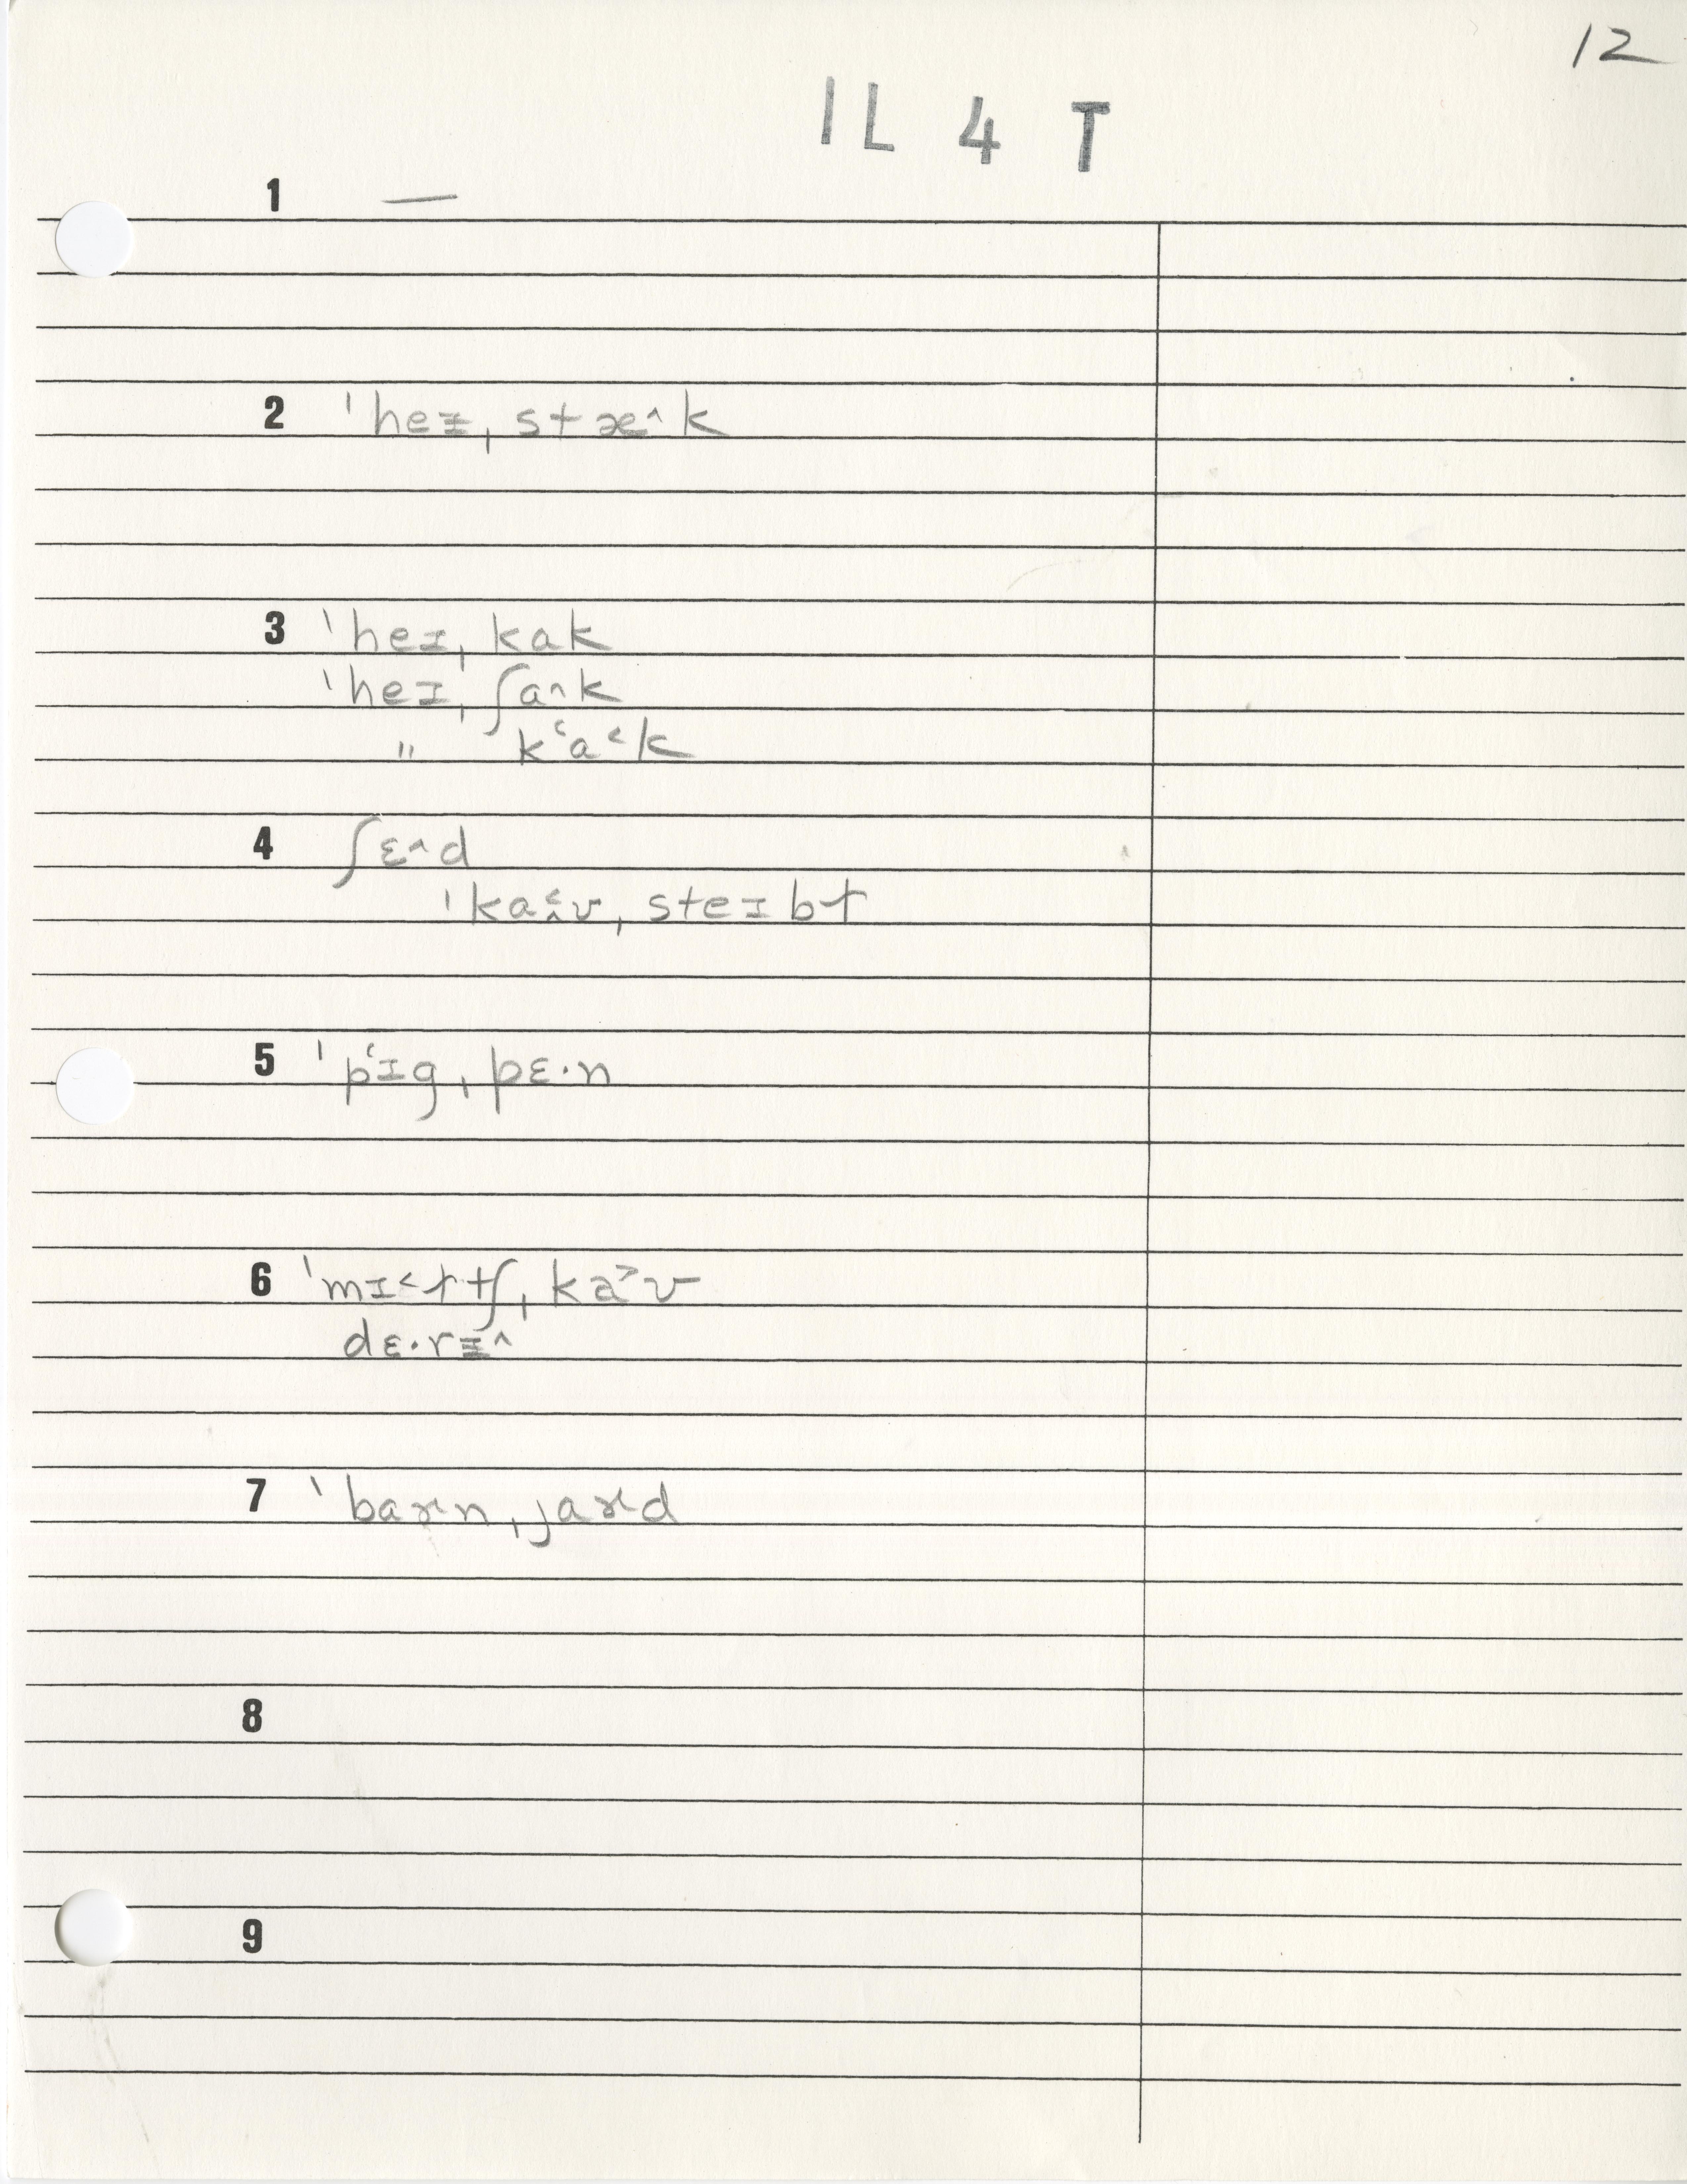 12
IL 4 T
1 —
2 ˈheɪ̵ˌstæ^k
3 ˈheɪˌkak
ˈheɪˌʃa^k
" kʻa˂k
4 ʃɛ^d
ˈka˂^ʊˌsteɪbɫ
5 ˈpʻɪgˌpɛ·n
6 ˈmɪ˂ɫtʃˌka˃ʊ
dɛ·rɪ̵^
7 ˈbaɚnˌjaɚd
8
9